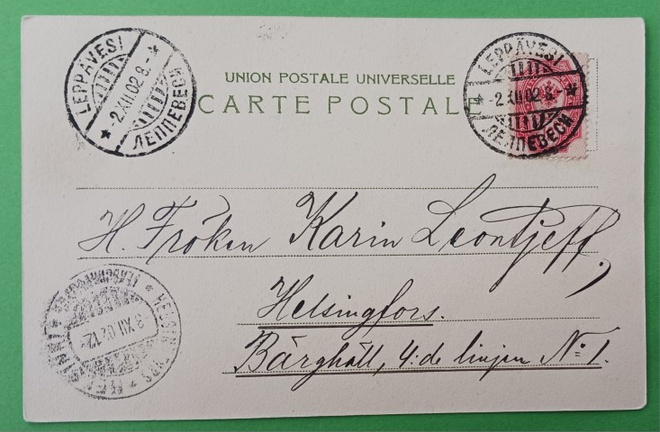 LEPPÄVESI
-2.XII.02.8.-
ЛЕППЕВЕСИ
UNION POSTALE UNIVERSELLE
CARTE POSTALE
LEPPÄVESI
-2.XII.02.8.-
ЛЕППЕВЕСИ
H. Fröken Karin Leontjeff,
Helsingfors.
Bärghäll, 4:de linjen No 1.
3.XII.02.12